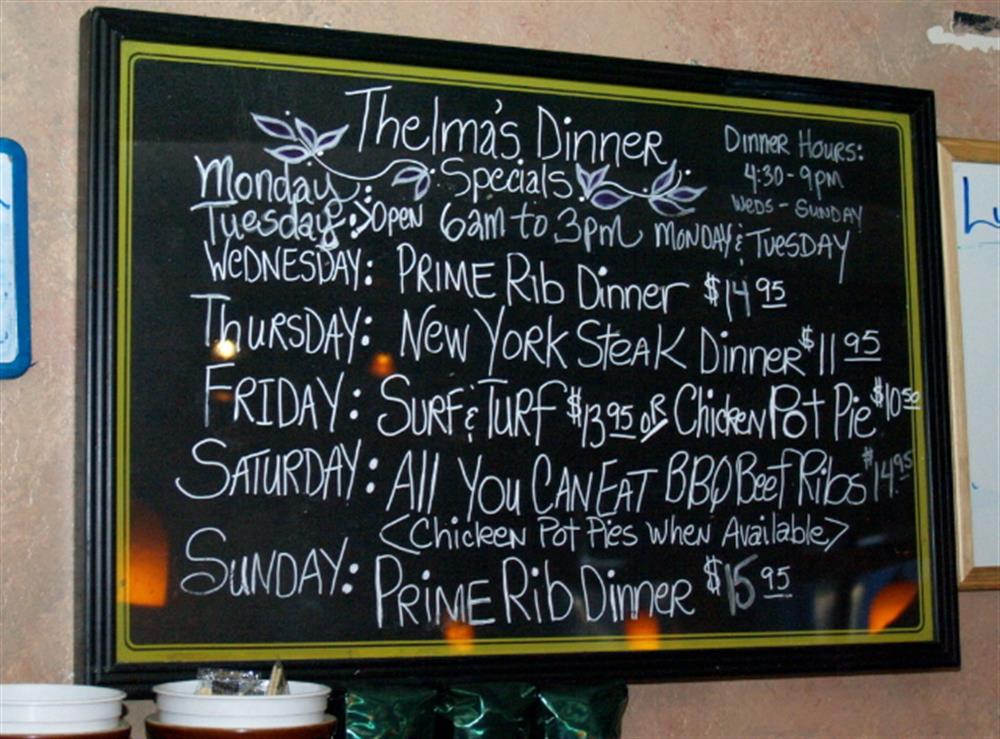 Thelma's Dinner
Specials
Dinner Hours:
4:30-9pm
Weds - Sunday
Monday:
Tuesday: >Open 6am to 3pm Monday & Tuesday
Wednesday: Prime Rib Dinner $14 95
Thursday: New York Steak Dinner $11 95
Friday: Surf & Turf $13 95 or Chicken Pot Pie $10 50
Saturday: All You Can Eat BBQ Beef Ribs $14.95
<Chicken Pot Pies when Available>
Sunday: Prime Rib Dinner $15 95